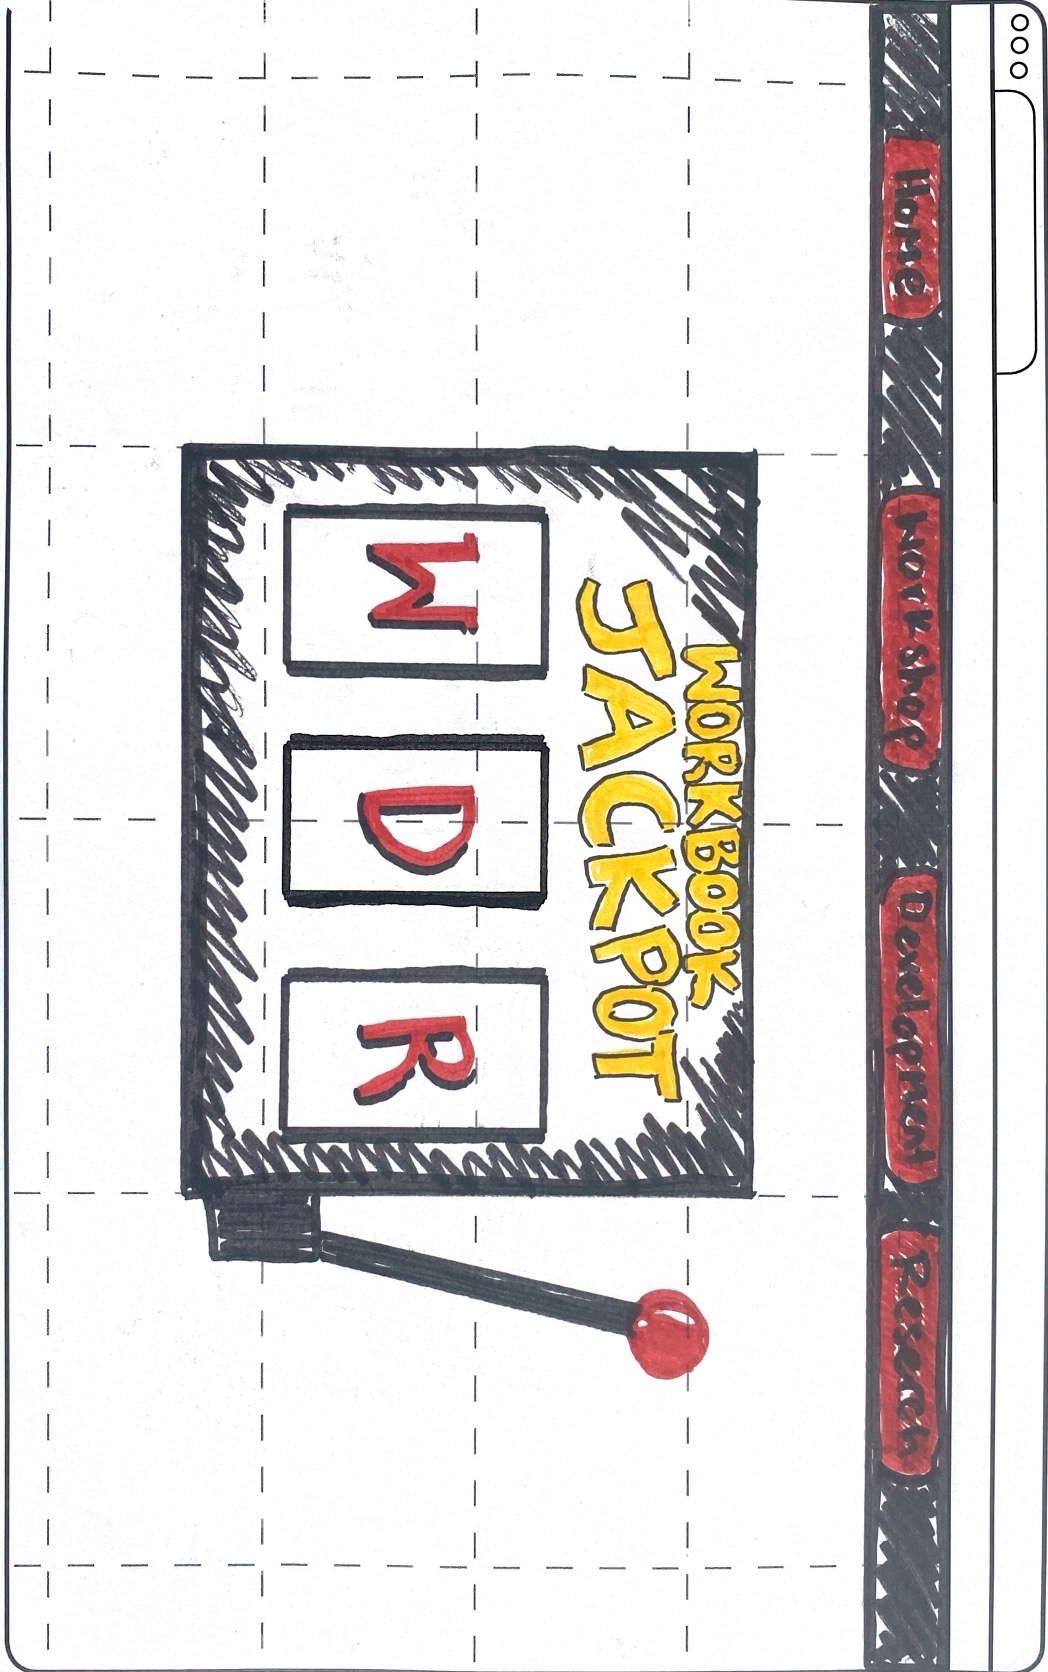 Home Workshop Development Reserch
WORKBOOK
JACKPOT
W D R